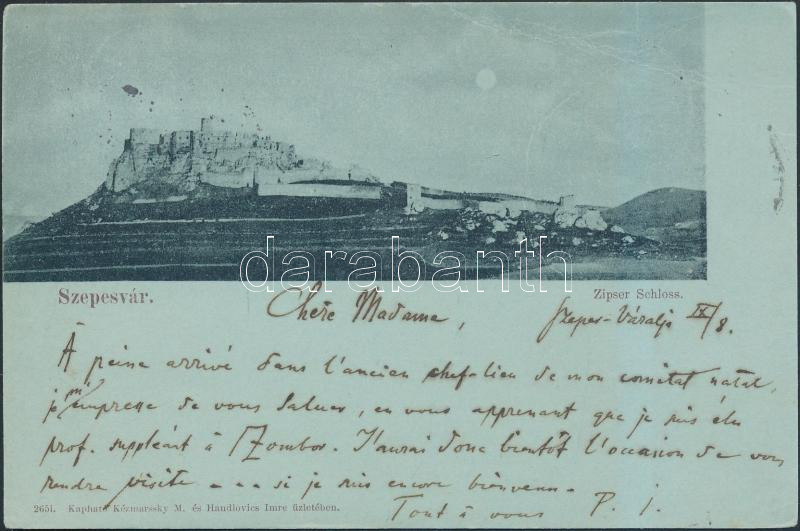 darabanth
Szepesvár.
Zipser Schloss.
Chère Madame,
Szepes-Váralja IX/8.
À peine arrivé dans l'ancien chef-lieu de mon comitat natal,
je m'empresse de vous saluer, en vous apprenant que je suis élu
prof. suppléant à Zombor. J'aurai donc bientôt l'occasion de vous
rendre visite - - - si je suis encore bienvenu.
Tout à vous P. J.
2651. Kapható Kézmarssky M. és Handlovics Imre üzletében.